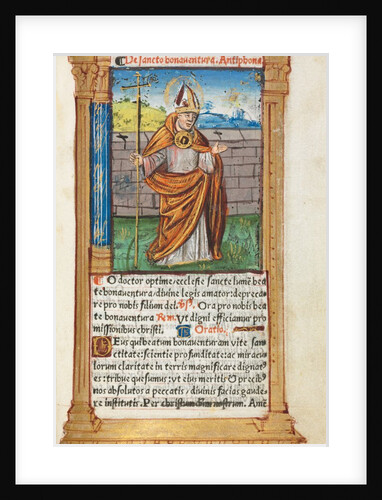 De sancto bonaventura. Antiphona
O doctor optime / ecclesie sancte lumē bea
te bonaventura / divine legis amator: depreca
re pro nobis filium dei. Ora pro nobis bea
te bonaventura Rem. Ut digni efficiamur pro
missionibus christi. Oratio.
Deus qui beatum bonaventuram vite san
ctitate: scientie profunditate: ac mira
culorum claritate in terris magnificare dignat
es: tribue quesumus / ut eius meritis & precib
nos absolutos a peccatis / divinis facias gaude
re institutis. Per christum dn̄m nostrum. Amē